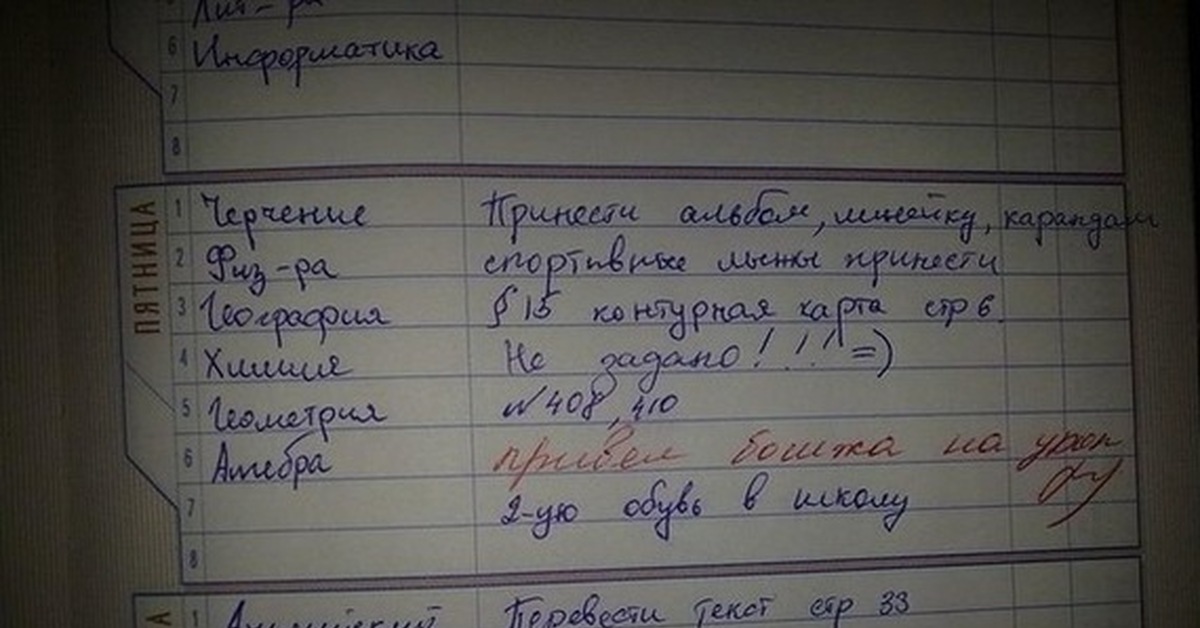 Лит-ра
6 Информатика
7
8
ПЯТНИЦА
1 Черчение Принести альбом, линейку, карандаш
2 Физ-ра спортивные лыжи принести
3 География § 15 контурная карта стр 6.
4 Химия Не задано!!!! =)
5 Геометрия № 408, 410
6 Алгебра привел бомжа на урок
7 2-ую обувь в школу
8
А
1 Английский Перевести текст стр 33